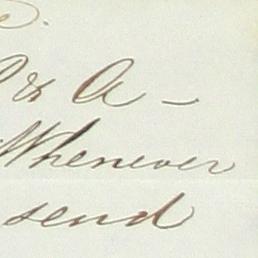 & A –
Whenever
send